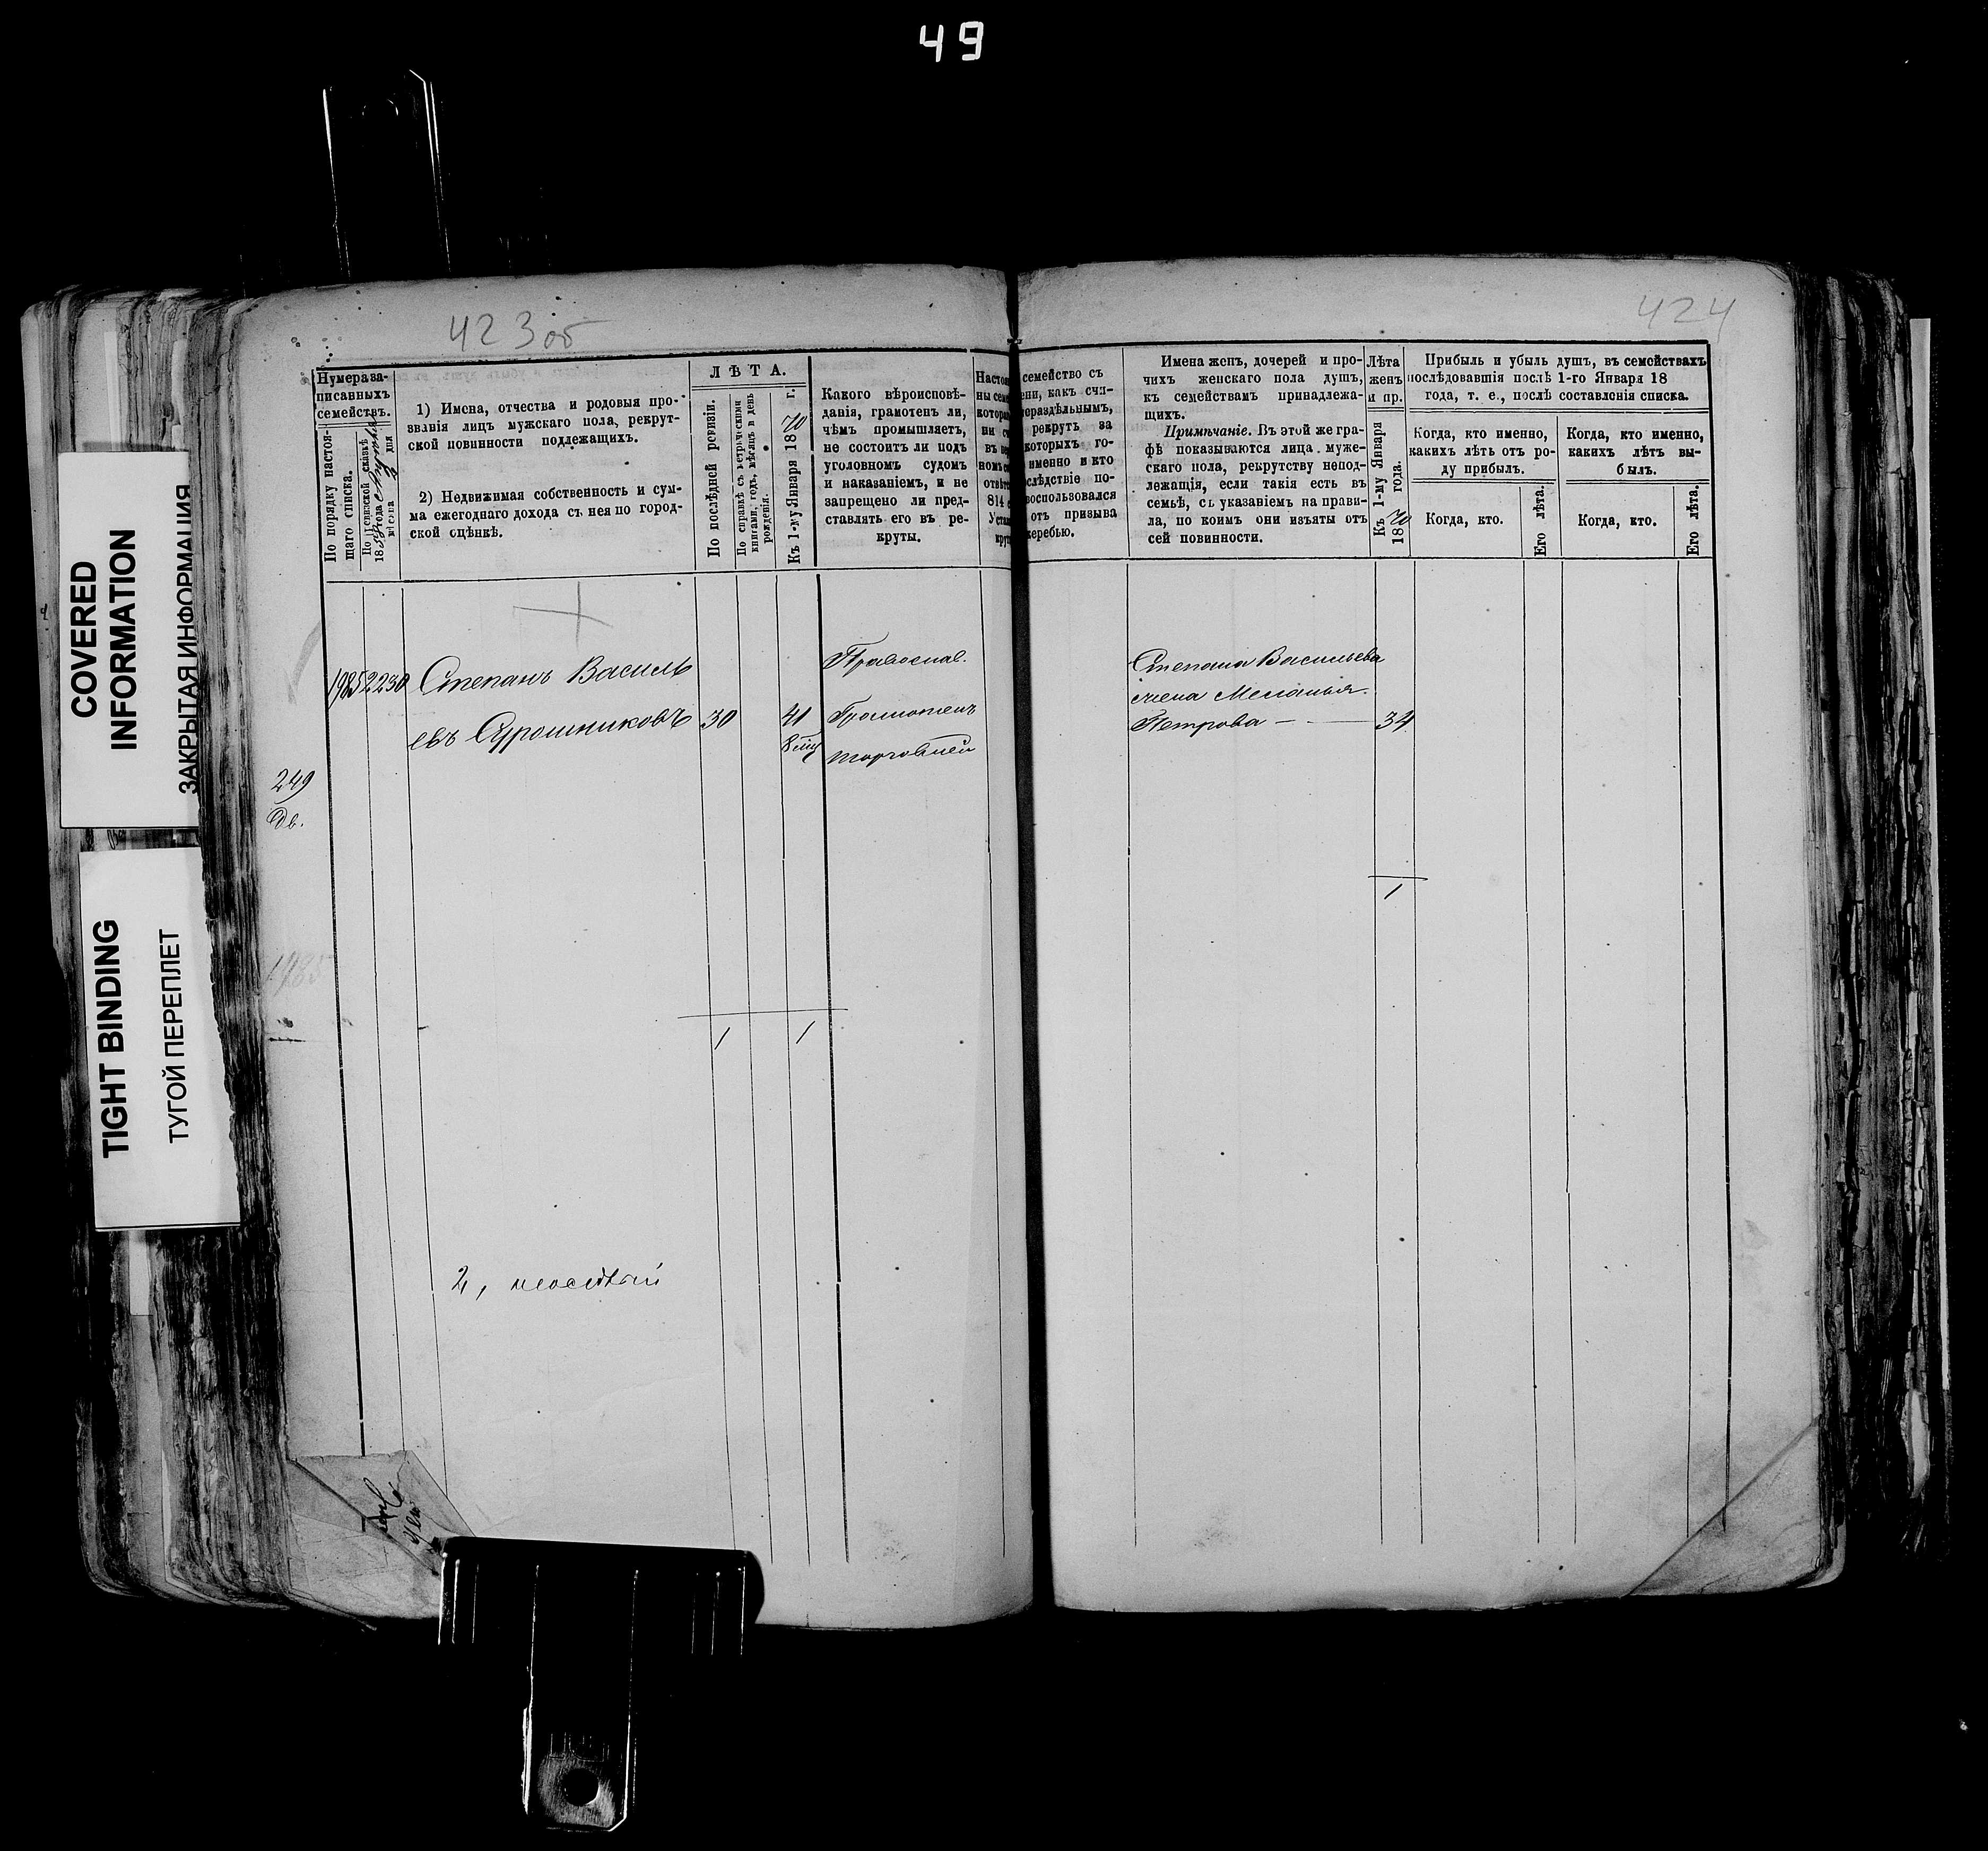 49
423об
424
COVERED
INFORMATION
ЗАКРЫТАЯ ИНФОРМАЦИЯ
TIGHT BINDING
ТУГОЙ ПЕРЕПЛЕТ
Нумера за-
писанныхъ
семействъ.
По порядку настоя-
щаго списка.
По ревизской сказкѣ
185 года
мѣсяца дня
1) Имена, отчества и родовыя про-
званія лицъ мужскаго пола, рекрут-
ской повинности подлежащихъ.
2) Недвижимая собственность и сум-
ма ежегоднаго дохода съ нея по город-
ской оцѣнкѣ.
ЛѢТА.
По послѣдней ревизіи.
По справкѣ съ метрическими
книгами, годъ, мѣсяцъ и день
рожденія.
Къ 1-му Января 1870 г.
Какого вѣроисповѣ-
данія, грамотенъ ли,
чѣмъ промышляетъ,
не состоитъ ли подъ
уголовномъ судомъ
и наказаніемъ, и не
запрещено ли пред-
ставлять его въ ре-
круты.
семейство съ
как счи-
нераздѣльнымъ,
рекрутъ за
которыхъ го-
именно и кто
по-
воспользовался
отъ призыва
жеребью.
Имена женъ, дочерей и про-
чихъ женскаго пола душъ,
къ семействамъ принадлежа-
щихъ.
Примѣчаніе. Въ этой же гра-
фѣ показываются лица муже-
скаго пола, рекрутству непод-
лежащія, если такія есть въ
семьѣ, съ указаніемъ на прави-
ла, по коимъ они изъяты отъ
сей повинности.
Лѣта
женъ
и пр.
Къ 1-му Января
1870 года.
Прибыль и убыль душъ, въ семействахъ
послѣдовавшія послѣ 1-го Января 18
года, т. е., послѣ составленія списка.
Когда, кто именно,
какихъ лѣтъ отъ ро-
ду прибылъ.
Когда, кто.
Его лѣта.
Когда, кто именно,
какихъ лѣтъ вы-
былъ.
Когда, кто.
Его лѣта.
1985 2230 Степанъ Василь
евъ 30 41
8 мц
Православ.
Грамотенъ
торговлей
Степана Васильева
жена Меланья
Петрова — 34
249
1985
1 1
1
2,